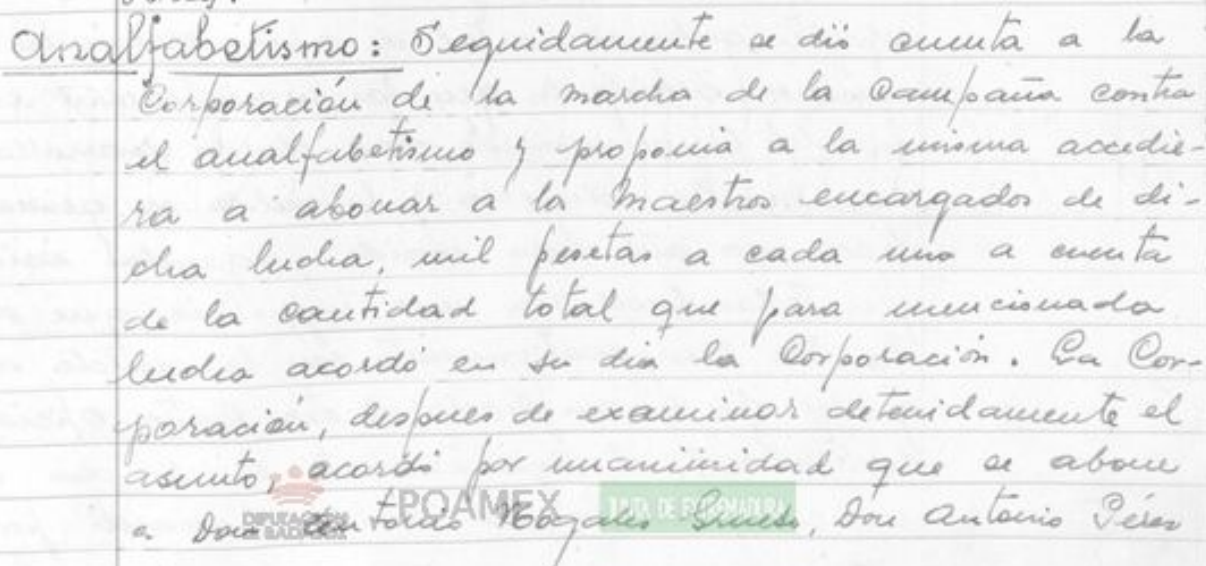 Analfabetismo: Seguidamente se dió cuenta a la
Corporación de la marcha de la Campaña contra
el analfabetismo y proponia a la misma accedie-
ra a abonar a los Maestros encargados de di-
cha lucha, mil pesetas a cada uno a cuenta
de la cantidad total que para mencionada
lucha acordó en su dia la Corporación. La Cor-
poración, despues de examinar detenidamente el
asunto, acordó por unanimidad que se abone
a Don Nogales, Don Antonio Pérez
DIPUTACIÓN DE BADAJOZ
POAMEX
JUNTA DE EXTREMADURA